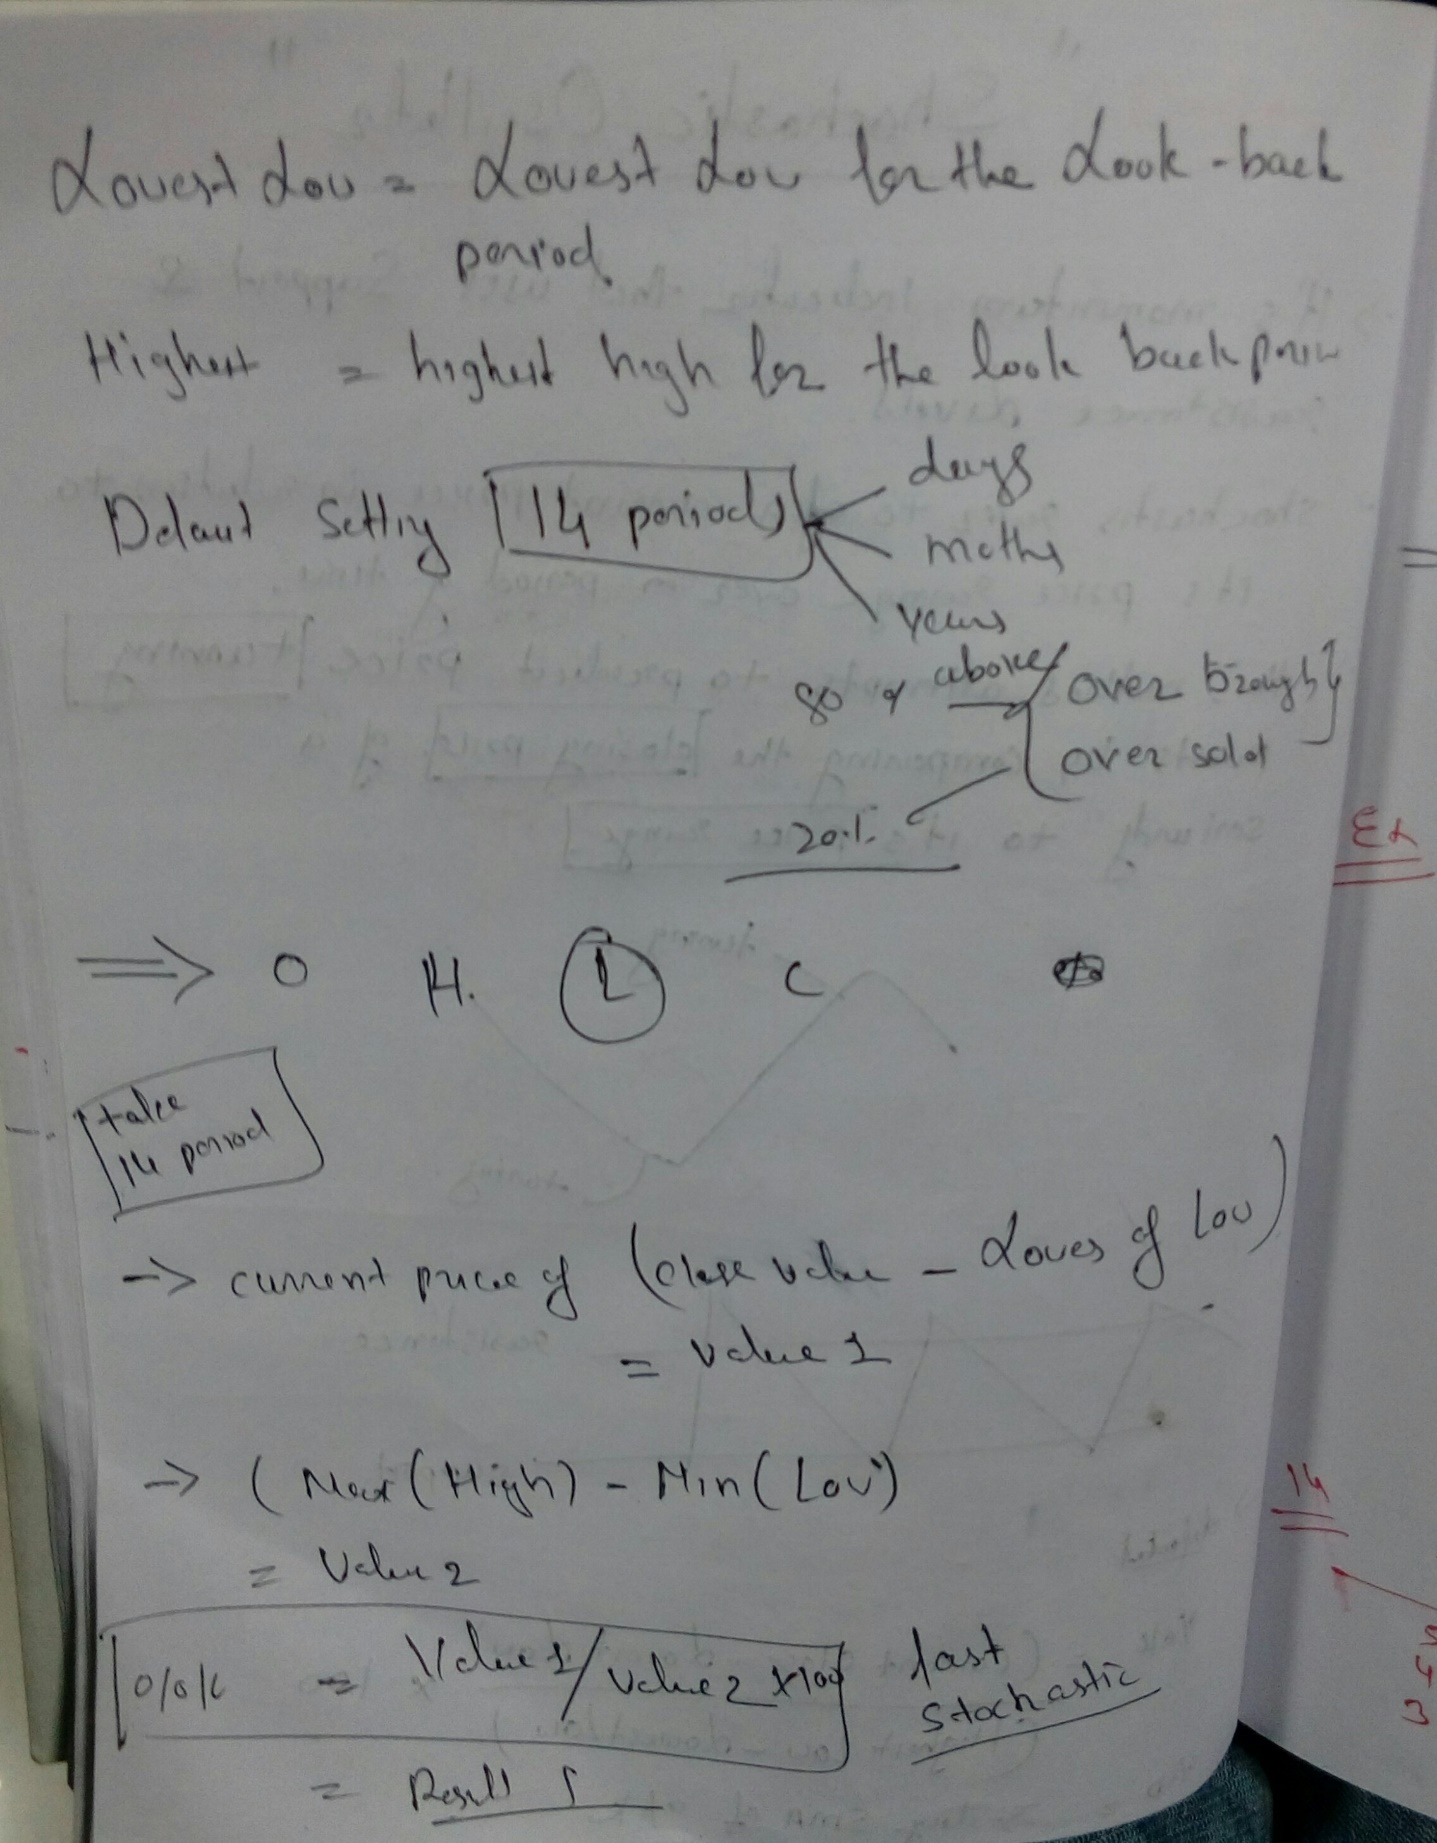 Lowest Low = Lowest Low for the Look-back
period.
Highest = highest high for the look back
Defaut Setting 14 periods
days
moths
years
80 & above
over brought
over sold
20%
⇒ O H. L C
take
14 period
→ current price of (close value - Lowes of Low)
= Value 1
→ (Max (High) - Min (Low)
= Value 2
%K = Value 1/Value 2 x100 fast
Stochastic
= Result
Ex
14